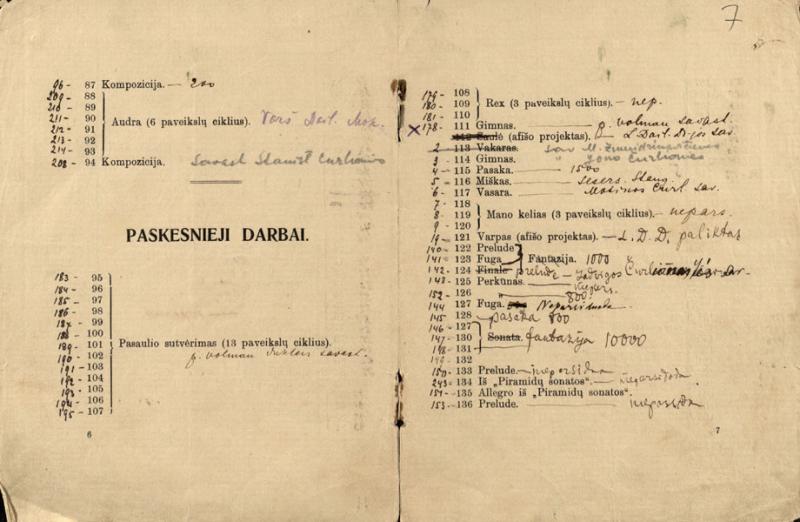 96 - 87 Kompozicija. — 200
209 - 88
210 - 89
211 - 90
Audra (6 paveikslų ciklius).
212 - 91
213 - 92
214 - 93
208 - 94 Kompozicija. Savast Stanisł Čurlionio
PASKESNIEJI DARBAI.
183 - 95
184 - 96
185 - 97
186 - 98
187 - 99
188 - 100
189 - 101 Pasaulio sutvėrimas (13 paveikslų ciklius).
190 - 102 p. Volman savast.
191 - 103
192 - 104
193 - 105
194 - 106
195 - 107
6
7
179 - 108
180 - 109 Rex (3 paveikslų ciklius). — nep.
181 - 110
X 178 - 111 Gimnas. — p. Volman savast.
112 Saulė (afišo projektas). — L. Dail. D-jos sav.
2 - 113 Vakaras. sav M.
3 - 114 Gimnas. " Jono Čurlionies
4 - 115 Pasaka. — 1500
5 - 116 Miškas. — Sesers
6 - 117 Vasara. — Motinos Čurl sav.
7 - 118
8 - 119 Mano kelias (3 paveikslų ciklius). — nepars.
9 - 120
121 Varpas (afišo projektas). — L. D. D. paliktas
140 - 122 Prelude
141 - 123 Fuga Fantazija. 1000
142 - 124 Finale prelude — Jadvygos
143 - 125 Perkūnas.
152 - 126 800
144 127 Fuga. Neparsiduoda
145 128 — pasaka 800
146 - 127
147 - 130 Sonata. fantazija 10000
148 - 131
149 - 132
150 - 133 Prelude. — neparsiduoda
243 - 134 Iš „Piramidų sonatos“. — neparsiduoda
151 - 135 Allegro iš „Piramidų sonatos“.
153 - 136 Prelude. — neparsiduoda
7